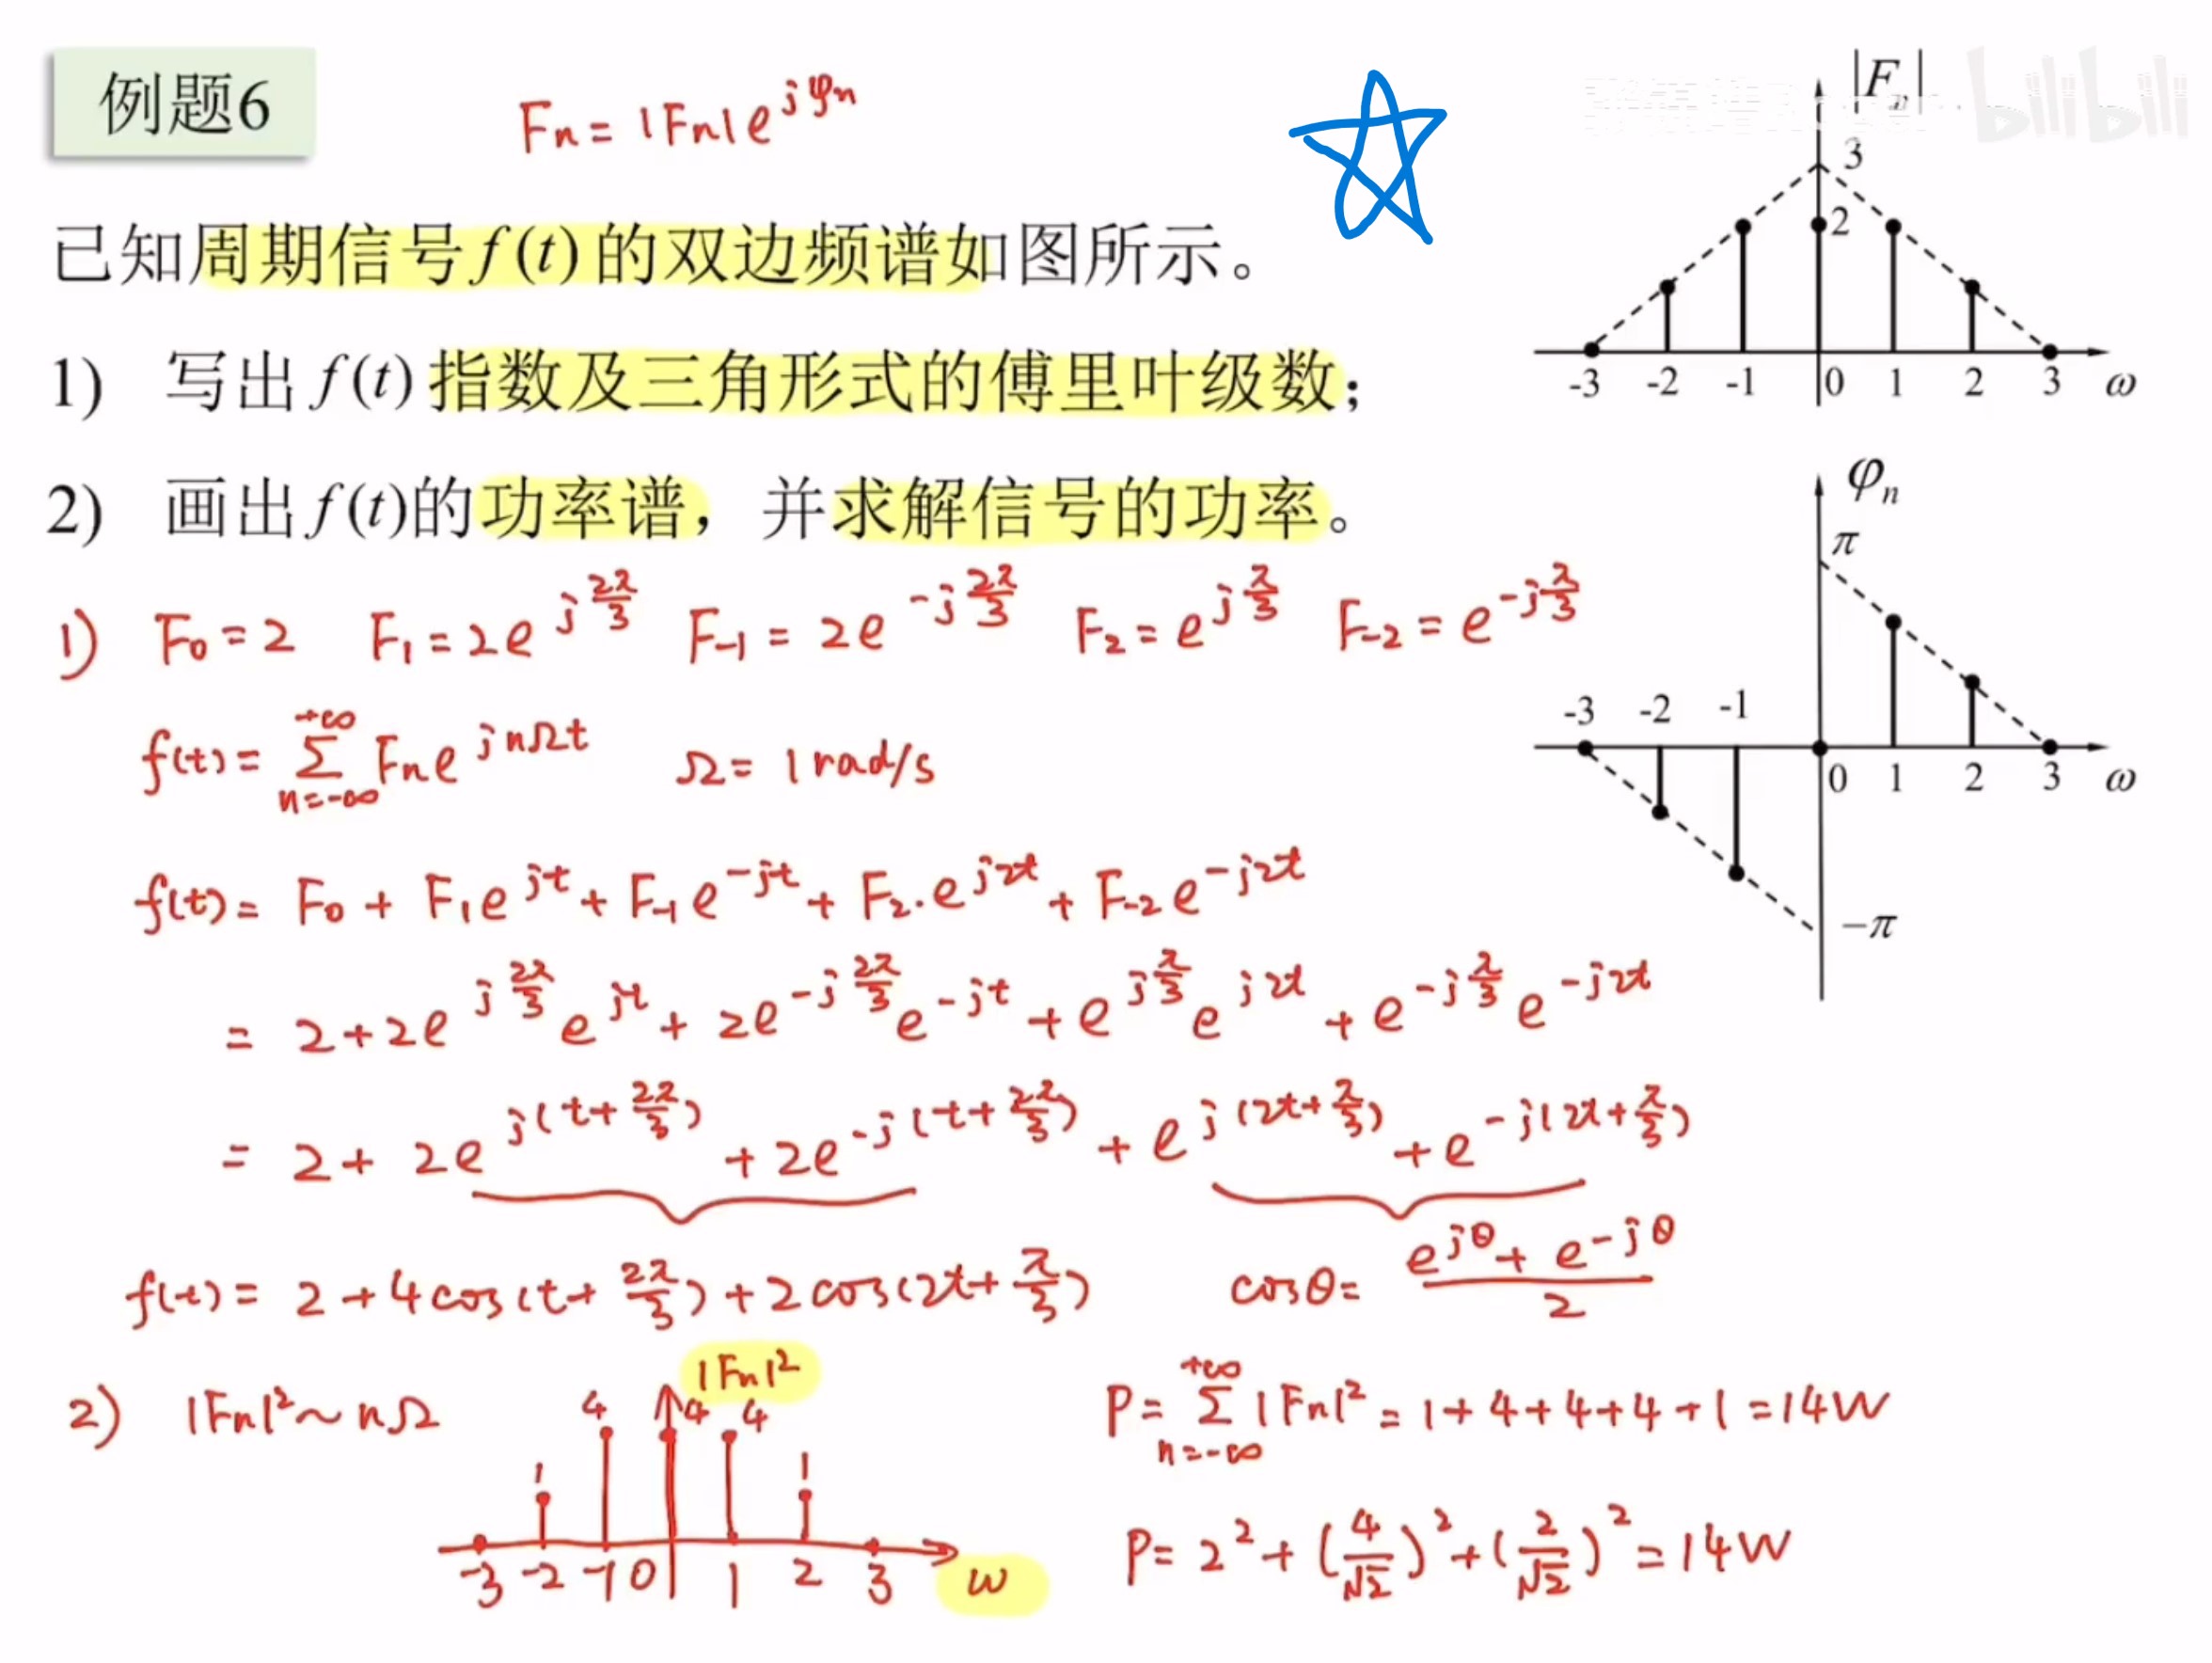 例题6
Fn = |Fn|e^{jφn}
已知周期信号f(t)的双边频谱如图所示。
1) 写出f(t)指数及三角形式的傅里叶级数；
2) 画出f(t)的功率谱，并求解信号的功率。
|Fn|
3
2
-3 -2 -1 0 1 2 3 ω
φn
π
-3 -2 -1
0 1 2 3 ω
−π
1) F0 = 2 F1 = 2e^{j2π/3} F-1 = 2e^{-j2π/3} F2 = e^{jπ/3} F-2 = e^{-jπ/3}
f(t) = Σ_{n=-∞}^{+∞} Fn e^{jnΩt} Ω = 1 rad/s
f(t) = F0 + F1e^{jt} + F-1e^{-jt} + F2·e^{j2t} + F-2e^{-j2t}
= 2 + 2e^{j2π/3}e^{jt} + 2e^{-j2π/3}e^{-jt} + e^{jπ/3}e^{j2t} + e^{-jπ/3}e^{-j2t}
= 2 + 2e^{j(t+2π/3)} + 2e^{-j(t+2π/3)} + e^{j(2t+π/3)} + e^{-j(2t+π/3)}
f(t) = 2 + 4cos(t + 2π/3) + 2cos(2t + π/3) cosθ = (e^{jθ} + e^{-jθ})/2
2) |Fn|² ~ nΩ
|Fn|²
1 4 4 4 1
-3 -2 -1 0 1 2 3 ω
P = Σ_{n=-∞}^{+∞} |Fn|² = 1+4+4+4+1 = 14W
P = 2² + (4/√2)² + (2/√2)² = 14W
bilibili